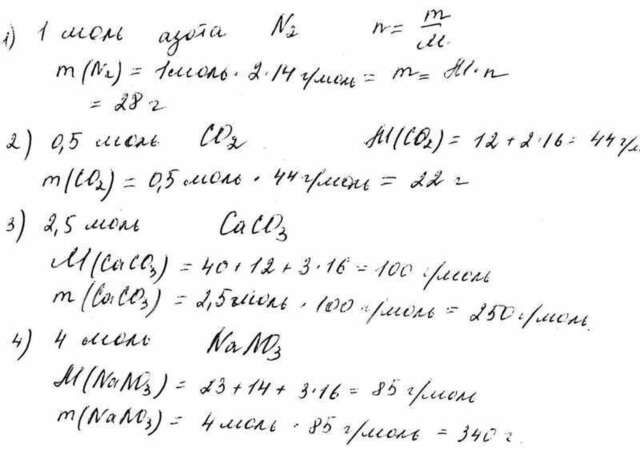 1) 1 моль азота N₂ n = m/M.
m(N₂) = 1моль · 2·14 г/моль = m = M·n
= 28 г
2) 0,5 моль CO₂ M(CO₂) = 12 + 2·16 = 44 г/м
m(CO₂) = 0,5 моль · 44 г/моль = 22 г
3) 2,5 моль CaCO₃
M(CaCO₃) = 40 + 12 + 3·16 = 100 г/моль
m(CaCO₃) = 2,5 моль · 100 г/моль = 250 г/моль.
4) 4 моль NaNO₃
M(NaNO₃) = 23 + 14 + 3·16 = 85 г/моль
m(NaNO₃) = 4 моль · 85 г/моль = 340 г.